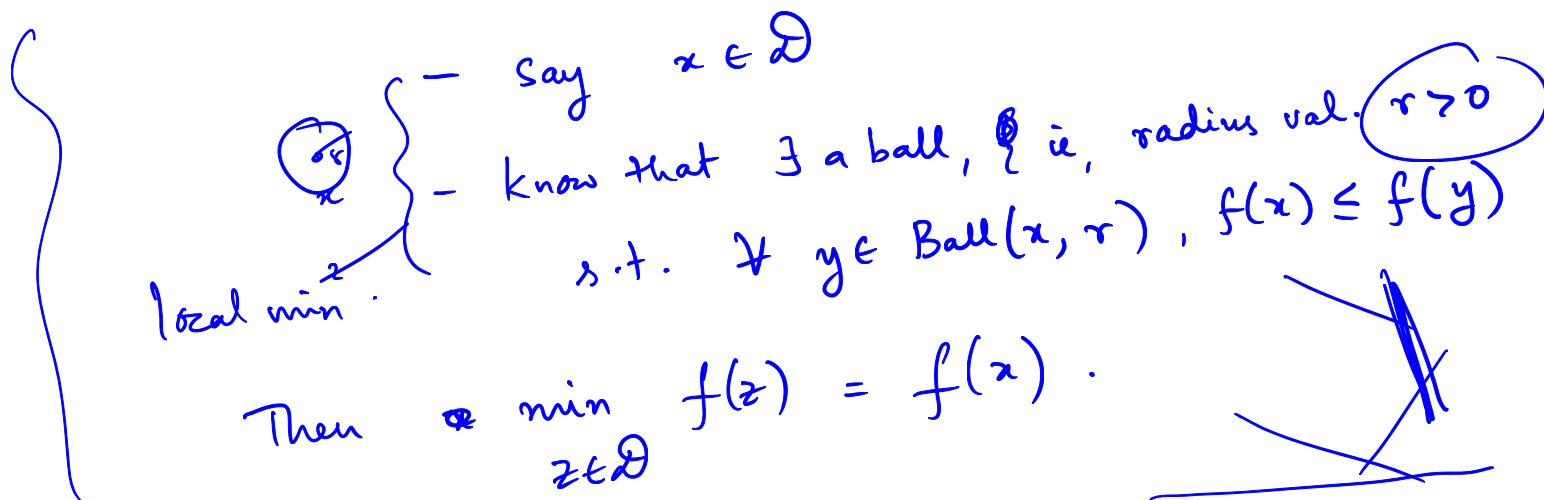 – Say x ∈ 𝒟
– know that ∃ a ball, ie, radius val. r > 0
s.t. ∀ y ∈ Ball(x, r), f(x) ≤ f(y)
x
local min.
Then min f(z) = f(x).
z ∈ 𝒟